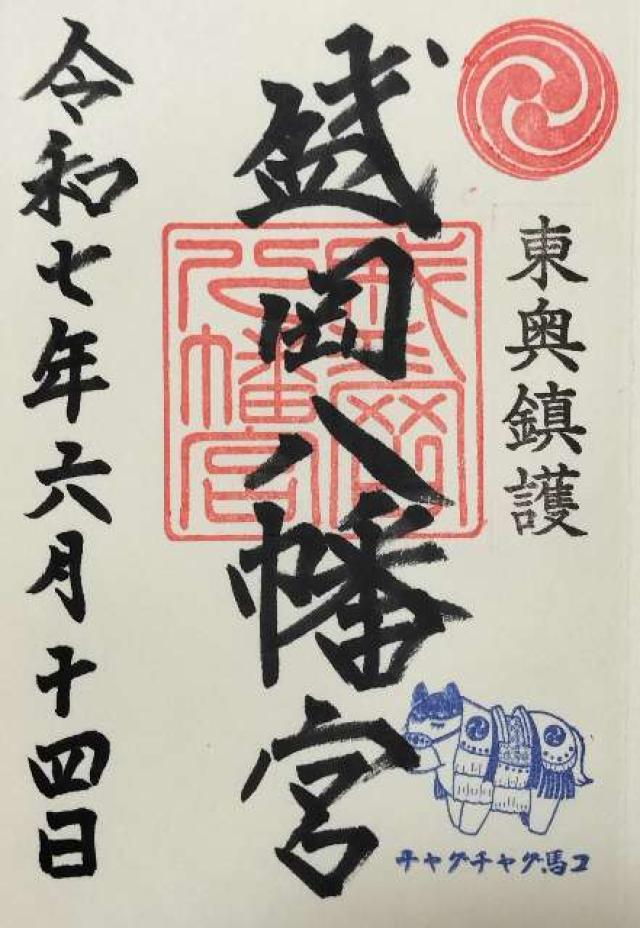 東奥鎮護
盛岡八幡宮
盛岡八幡宮
チャグチャグ馬コ
令和七年六月十四日